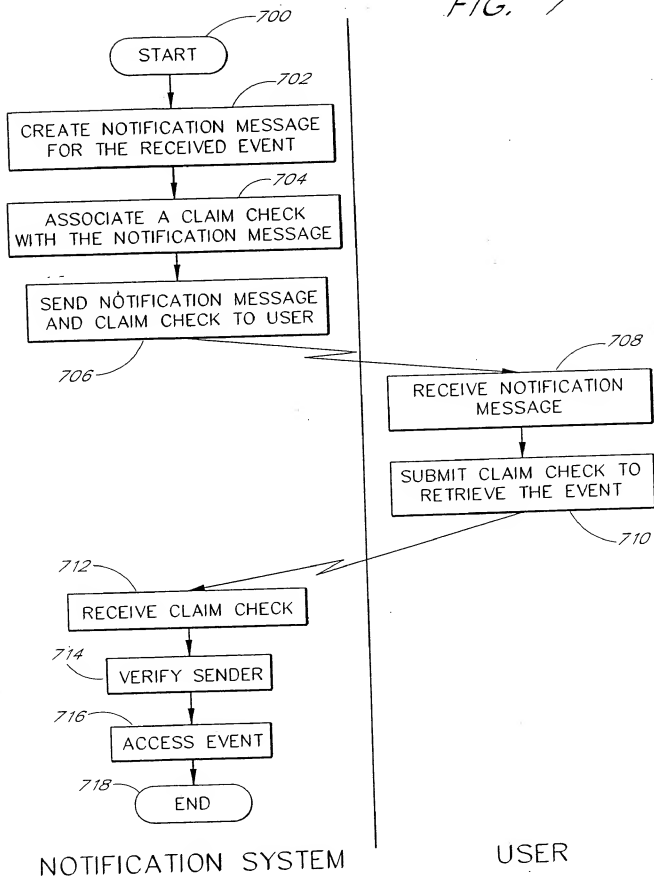 FIG. 7
700
START
702
CREATE NOTIFICATION MESSAGE
FOR THE RECEIVED EVENT
704
ASSOCIATE A CLAIM CHECK
WITH THE NOTIFICATION MESSAGE
SEND NOTIFICATION MESSAGE
AND CLAIM CHECK TO USER
706
708
RECEIVE NOTIFICATION
MESSAGE
SUBMIT CLAIM CHECK TO
RETRIEVE THE EVENT
710
712
RECEIVE CLAIM CHECK
714
VERIFY SENDER
716
ACCESS EVENT
718
END
NOTIFICATION SYSTEM
USER